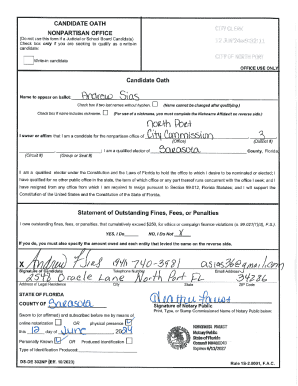 CANDIDATE OATH
NONPARTISAN OFFICE
(Do not use this form if a Judicial or School Board Candidate)
Check box only if you are seeking to qualify as a write-in candidate:
Write-in candidate
CITY CLERK
CITY OF NORTH PORT
OFFICE USE ONLY
Candidate Oath
Name to appear on ballot: Andrew Sias
Check box if two last names without hyphen. (Name cannot be changed after qualifying.)
Check box if name includes nickname. (For use of a nickname, you must complete the Nickname Affidavit on reverse side.)
North Port
I swear or affirm that I am a candidate for the nonpartisan office of City Commission 3
(Office) (District #)
I am a qualified elector of Sarasota County, Florida
(Circuit #) (Group or Seat #)
I am a qualified elector under the Constitution and the Laws of Florida to hold the office to which I desire to be nominated or elected; I
have qualified for no other public office in the state, the term of which office or any part thereof runs concurrent with the office I seek; and I
have resigned from any office from which I am required to resign pursuant to Section 99.012, Florida Statutes; and I will support the
Constitution of the United States and the Constitution of the State of Florida.
Statement of Outstanding Fines, Fees, or Penalties
I owe outstanding fines, fees, or penalties, that cumulatively exceed $250, for ethics or campaign finance violations
YES, I Do NO, I Do Not X
If you do, you must also specify the amount owed and each entity that levied the same on the reverse side.
X Andrew F Sias (941) 740-3581
Signature of Candidate Telephone Number Email Address
North Port FL 34286
Address of Legal Residence City State ZIP Code
STATE OF FLORIDA
COUNTY OF Sarasota
Signature of Notary Public
Print, Type, or Stamp Commissioned Name of Notary Public below:
Sworn to (or affirmed) and subscribed before me by means of
online notarization OR physical presence
this day of June, 2024
Personally Known OR Produced Identification
Type of Identification Produced:
Notary Public
State of Florida
DS-DE 302NP
Rule 1S-2.0001, F.A.C.